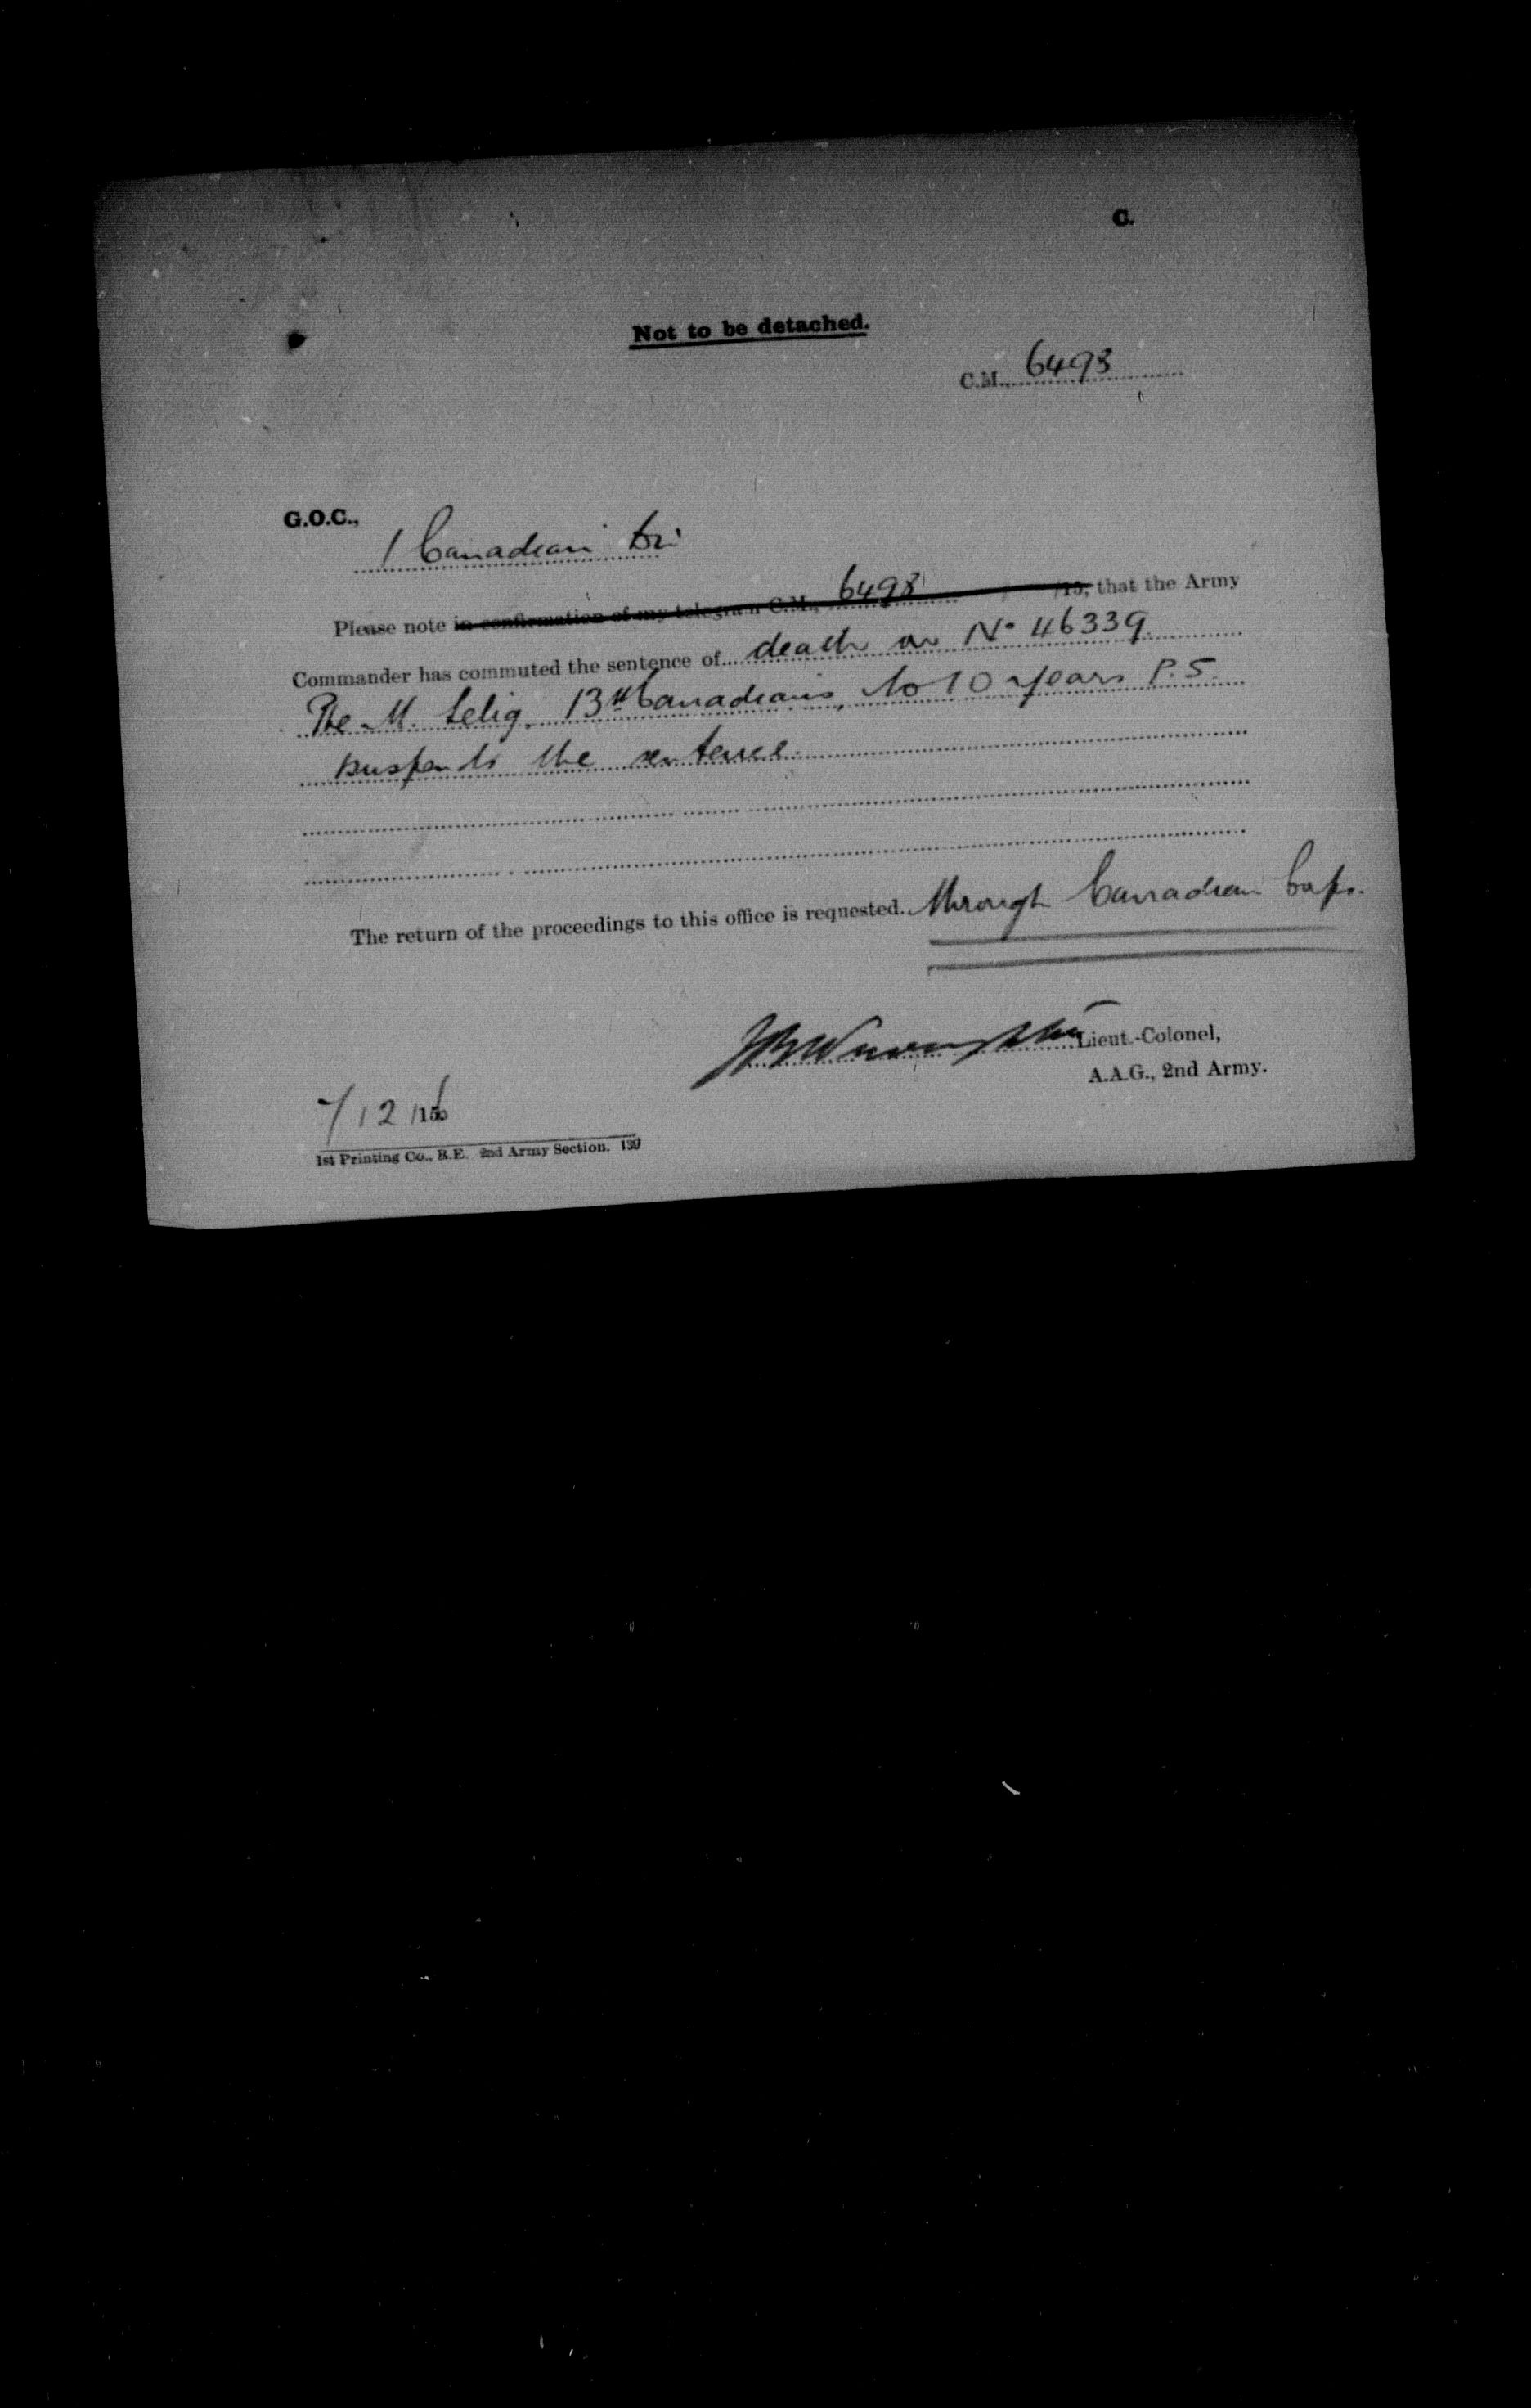 C.
Not to be detached.
C.M., 6493
G.O.C.,
1 Canadian Div
Please note in confirmation of my telegram C.M., 6493 / /15, that the Army
Commander has commuted the sentence of death on No 46339
Pte M. Selig, 13th Canadians, to 10 years P.S.
suspends the sentence.
The return of the proceedings to this office is requested. through Canadian Corps.
Lieut.-Colonel,
A.A.G., 2nd Army.
7/12/15
1st Printing Co., R.E. 2nd Army Section. 139